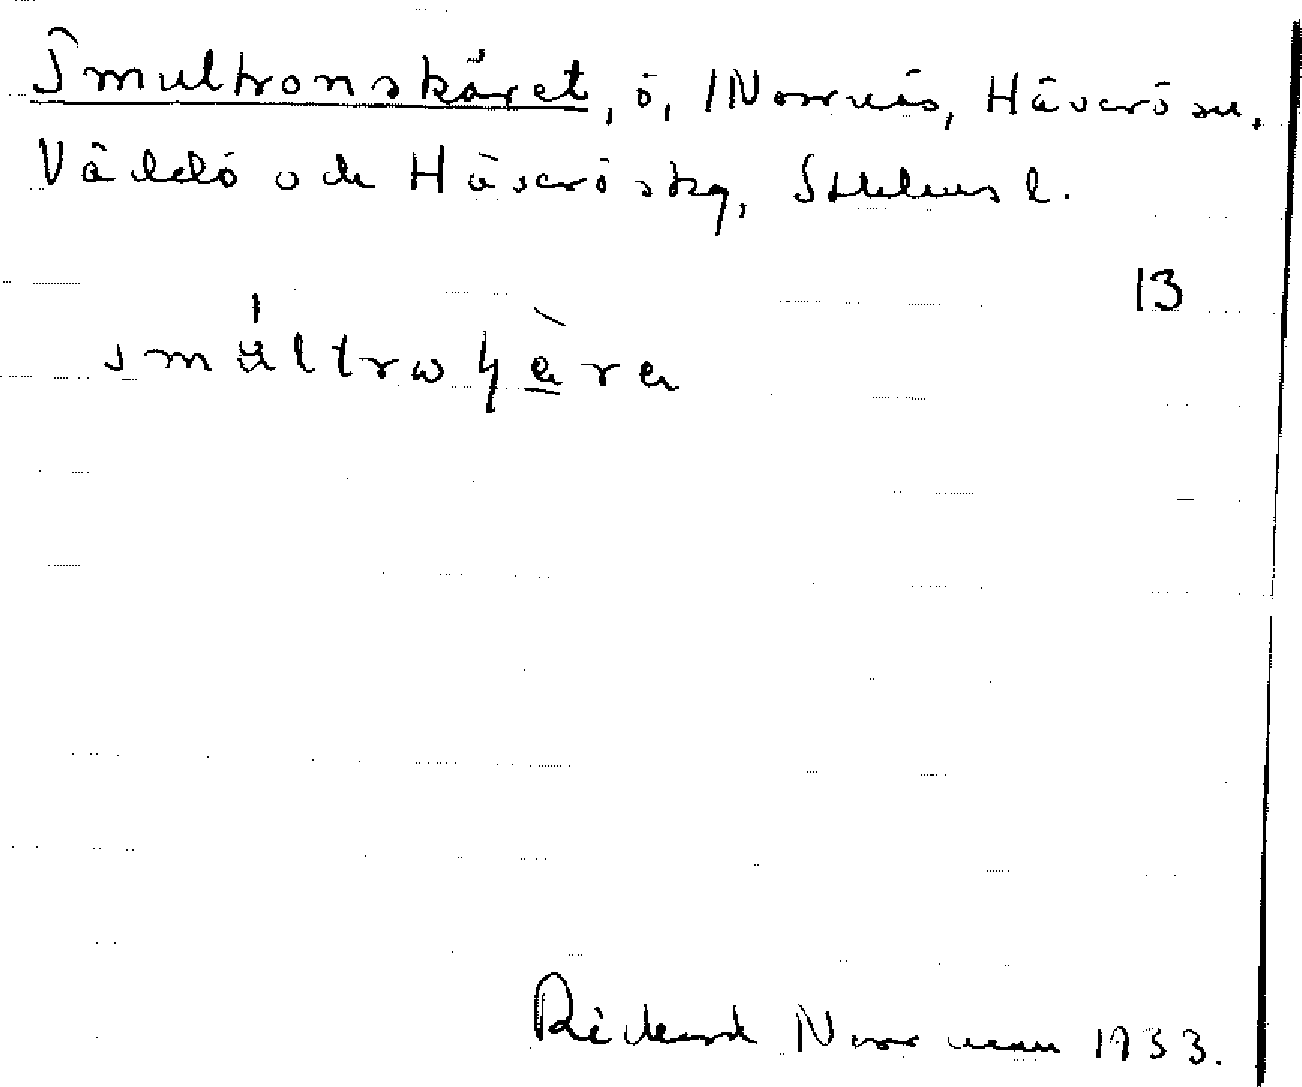 Smultronskäret, ö, Norrnäs, Häverö sn.
Väddö och Häverö skg, Sthlms l.
13
Rickard Norrman 1933.